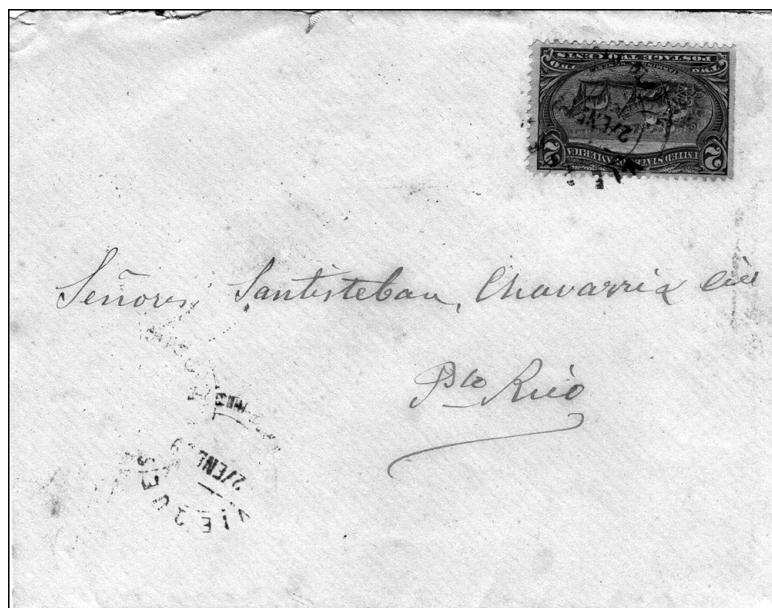 TWO POSTAGE TWO CENTS TWO
2 UNITED STATES OF AMERICA 2
Señores Santisteban, Chavarria Cía
Pto Rico
VIEQUES
2/ENE